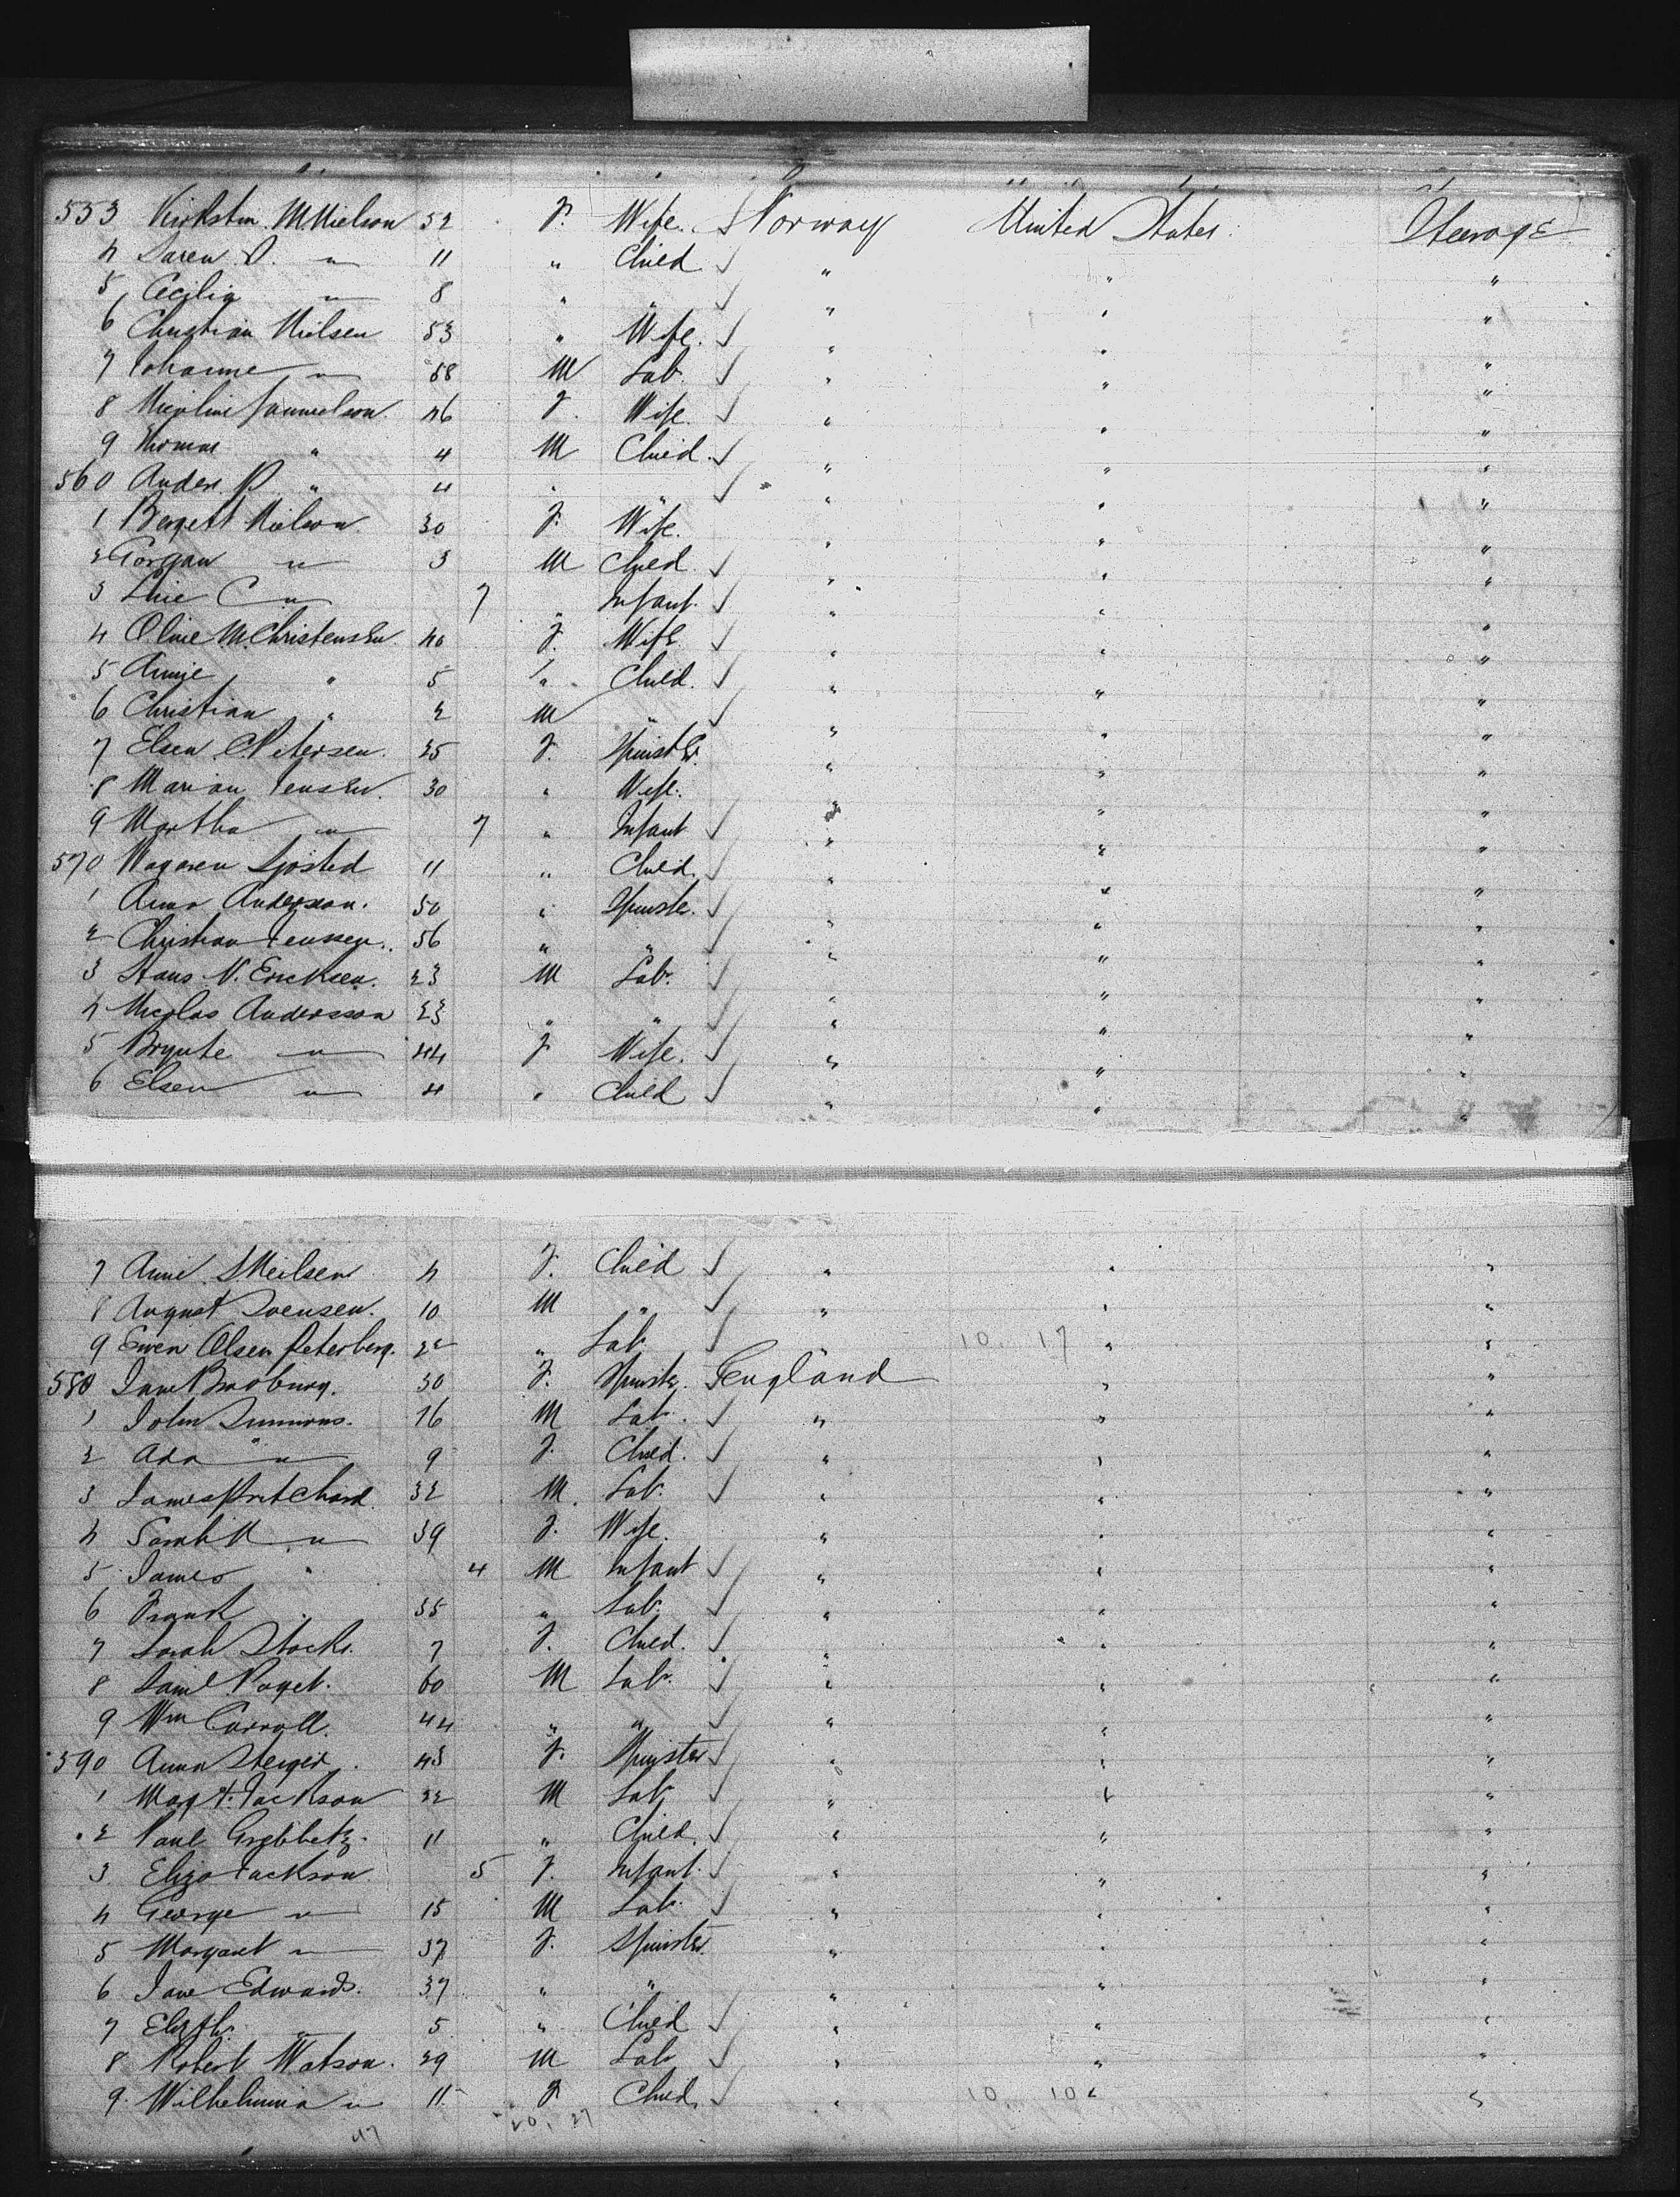 553 Kirkstin M. Nielson 52 F. Wife. Norway United States Steerage
4 Saren O. " 11 " Child " " "
5 Cecilia " 8 " " " " "
6 Christian Nielsen 53 " Wife. " " "
7 Johanne " 58 M Lab. " " "
8 Nicoline Samuelson 46 F. Wife. " " "
9 Thomas " 4 M Child. " " "
560 Anders P. " 4 " " " " "
1 Bergett Nielson 30 F. Wife. " " "
2 Gorgan " 3 M Child. " " "
3 Line C " 7 " Infant. " " "
4 Oline M. Christensen 40 F. Wife " " "
5 Annie " 5 " Child. " " "
6 Christian " 2 M " " " "
7 Elsen C. Petersen. 25 F. Spinster. " " "
8 Marian Jensen. 30 " Wife. " " "
9 Martha " 7 " Infant " " "
570 Sjosted 11 " Child. " " "
1 Anna Andersson. 50 " Spinster. " " "
2 Christian Jenssen. 56 " " " " "
3 Hans N. Ericksen. 23 M Lab. " " "
4 Nicolas Andersson 23 " " " " "
5 Brynte " 44 F Wife. " " "
6 Elsen " 4 " Child " " "
7 Anne S Neilsen 4 F. Child " " "
8 August Svensen. 10 M " " " "
9 Swen Olsen Peterberg. 22 " Lab. " 10. 17 " "
580 Jane Bradburg. 30 F. Spinster. England " "
1 John Simmons. 76 M Lab. " " "
2 Ada " 9 F. Child. " " "
3 James Pritchard. 32 M. Lab. " " "
4 Sarah A " 39 F. Wife. " " "
5 James " 4 M Infant " " "
6 Frank " 35 " Lab. " " "
7 Sarah Stocks. 7 F. Child. " " "
8 Saml Paget. 60 M Lab. " " "
9 Wm Carroll. 44 " " " " "
590 Anna 43 F. Spinster " " "
1 Margt. Jackson 22 M Lab. " " "
2 Paul 11 " Child. " " "
3 Eliza Jackson 5 F. Infant. " " "
4 George " 15 M Lab. " " "
5 Margaret " 37 F. Spinster. " " "
6 Jane Edwards. 37 " " " " "
7 Elizth. " 5 " Child " " "
8 Robert Watson. 29 M Lab " " "
9. Wilhelmina " 11 F Child. " 10. 10 " "
47 20, 27